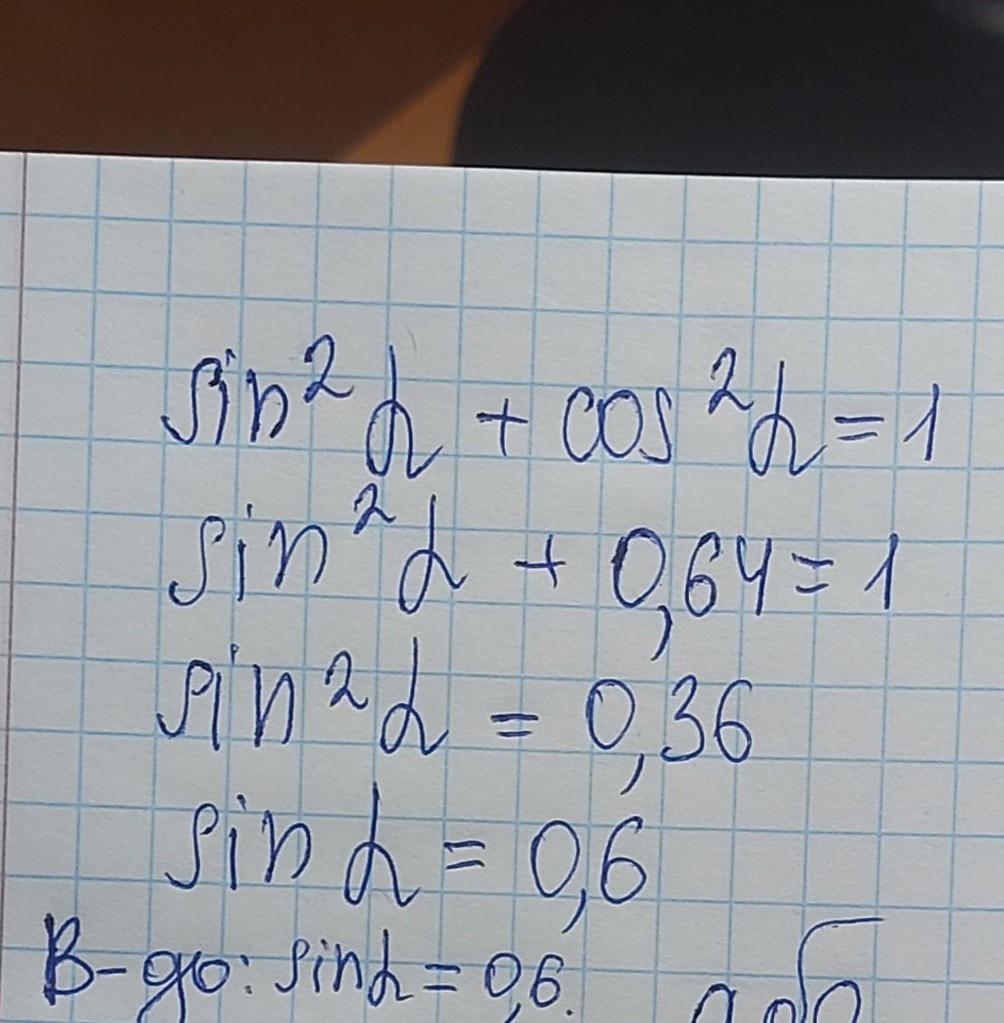 sin²α + cos²α = 1
sin²α + 0,64 = 1
sin²α = 0,36
sin α = 0,6
В-до: sinα = 0,6.